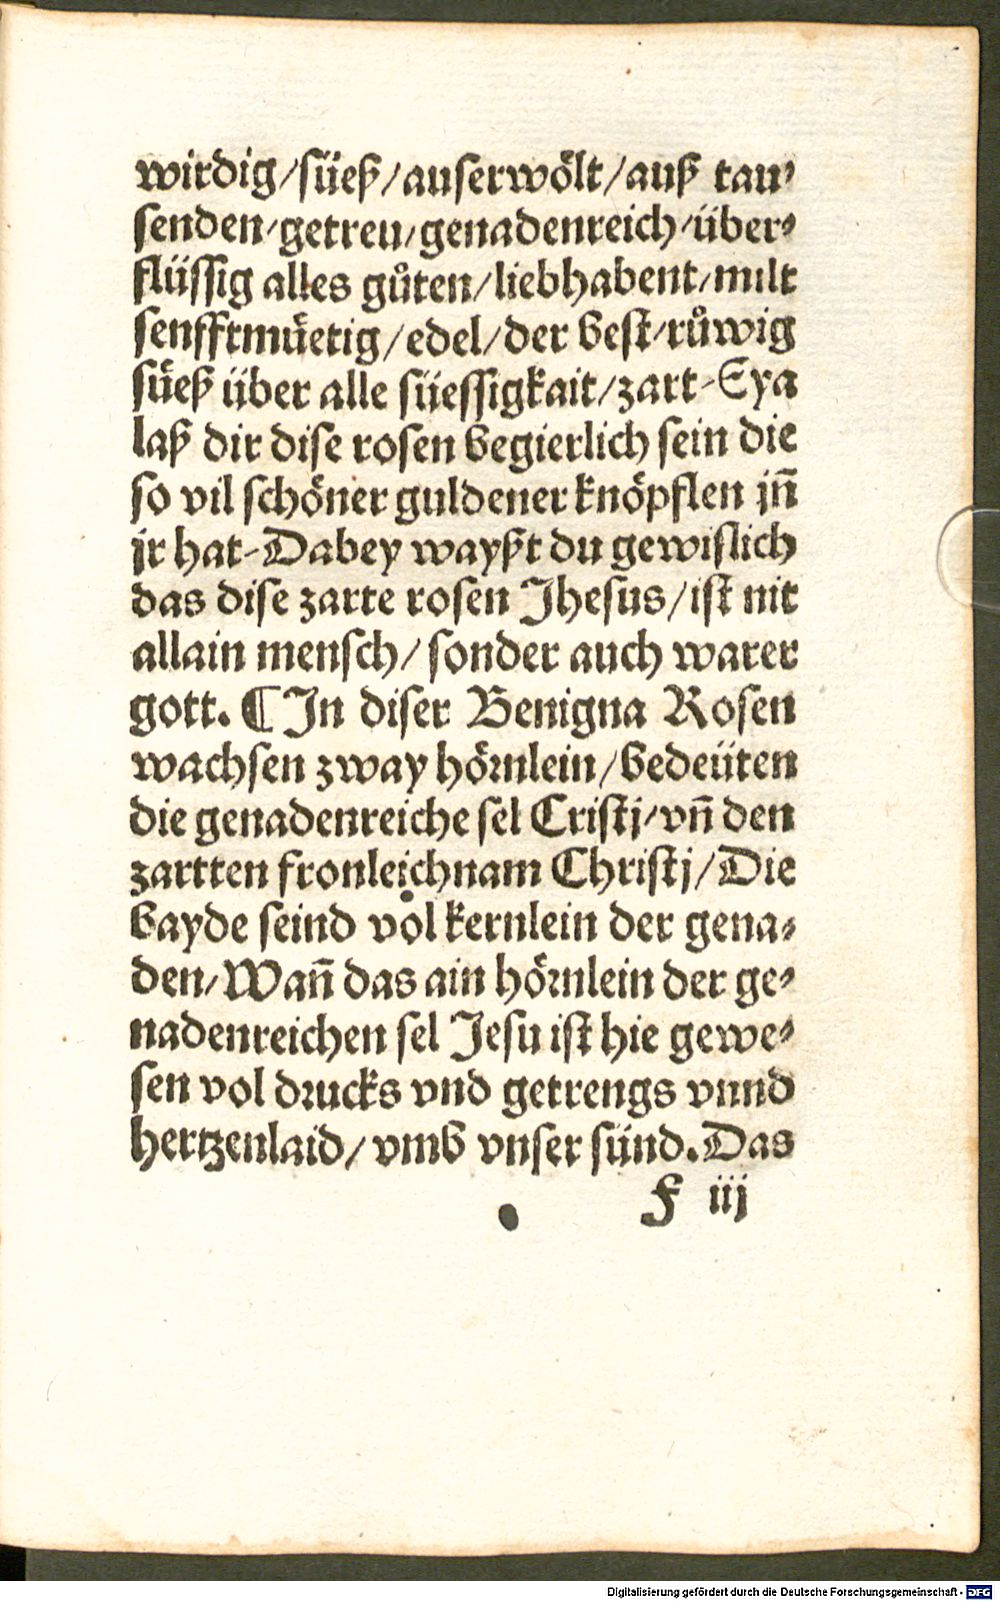 wirdig/süeß/auserwölt/auß tau-
senden/getreu/genadenreich/über-
flüssig alles gůten/liebhabent/milt
senfftmüetig/edel/der best/růwig
süeß über alle süessigkait/zart-Eya
laß dir dise rosen begierlich sein die
so vil schöner guldener knöpflen jñ
jr hat-Dabey wayßt du gewislich
das dise zarte rosen Jhesus/ist nit
allain mensch/sonder auch warer
gott. ¶ In diser Benigna Rosen
wachsen zway hörnlein/bedeüten
die genadenreiche sel Cristj/vñ den
zartten fronleichnam Christj/Die
bayde seind vol kernlein der gena-
den/Wañ das ain hörnlein der ge-
nadenreichen sel Jesu ist hie gewe-
sen vol drucks vnd getrengs vnnd
hertzenlaid/vmb vnser sünd.Das
F iij
Digitalisierung gefördert durch die Deutsche Forschungsgemeinschaft - DFG